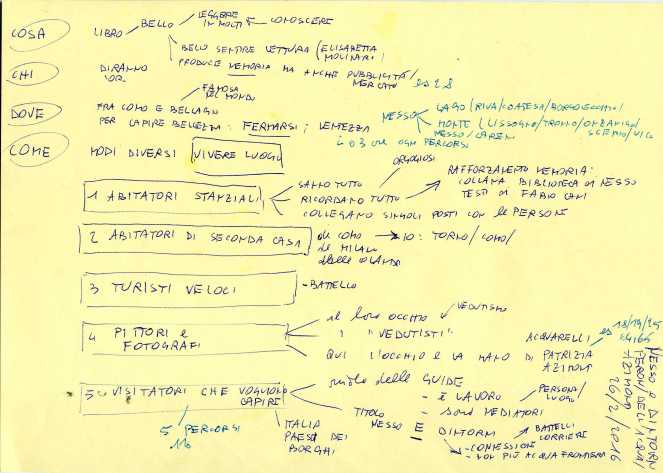 COSA
LIBRO
BELLO
LEGGERE
IN MOLTI
CONOSCERE
BELLO SENTIRE LETTURA (ELISABETTA
MOLINARI)
PRODUCE MEMORIA MA ANCHE PUBBLICITÀ/
MERCATO
es 28
CHI
DIRANNO
LORO
DOVE
FRA COMO E BELLAGIO
FAMOSA
NEL MONDO
PER CAPIRE BELLEZZA: FERMARSI; LENTEZZA
NESSO
LAGO (RIVA/COATESA/BORGO
MONTE (LISSOGNO/TRONNO/ONZANIGO/
NESSO/CARENO
SCERIO/VICO
2 o 3 ore ogni PERCORSI
COME
MODI DIVERSI VIVERE LUOGO
1 ABITATORI STANZIALI
SANNO TUTTO
ORGOGLIOSI
RICORDANO TUTTO
COLLEGANO SINGOLI POSTI CON le PERSONE
RAFFORZAMENTO MEMORIA:
COLLANA BIBLIOTECA DI NESSO
TESTI DI FABIO CANI
2 ABITATORI DI SECONDA CASA
de COMO
de MILANO
dalle OLANDA
IO: TORNO/COMO/
3 TURISTI VELOCI
- BATTELLO
4 PITTORI e
FOTOGRAFI
il loro occhio
VEDUTISMO
I "VEDUTISTI"
QUI L'OCCHIO E LA MANO DI PATRIZIA
AZIMONT
ACQUARELLI
es 18/19/25
64/65
5 VISITATORI CHE VOGLIONO
CAPIRE
5 PERCORSI
16
ITALIA
PAESE DEI
BORGHI
ruolo delle GUIDE
- è LAVORO
PERSONA/
LUOGO
- sono MEDIATORI
TITOLO
NESSO E DINTORNI
BATTELLI
CORRIERE
- CONNESSIONE
- NON PIÙ ACQUA FRONTIERA
NESSO e DINTORNI
PERCORSI DELL'ACQUA/
AZIMONT
26/2/2016